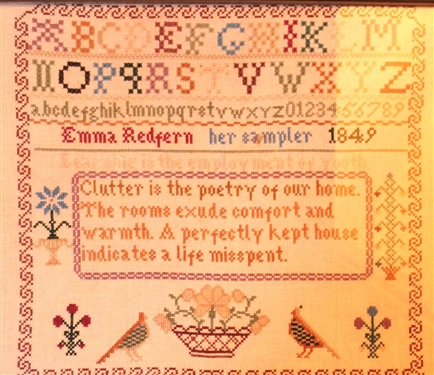 A B C D E F G H I K L M
N O P Q R S T V W X Y Z
abcdefghiklmnopqrstvwxyz0123456789
Emma Redfern her sampler 1849
Learning is the employment of youth
Clutter is the poetry of our home.
The rooms exude comfort and
warmth. A perfectly kept house
indicates a life misspent.